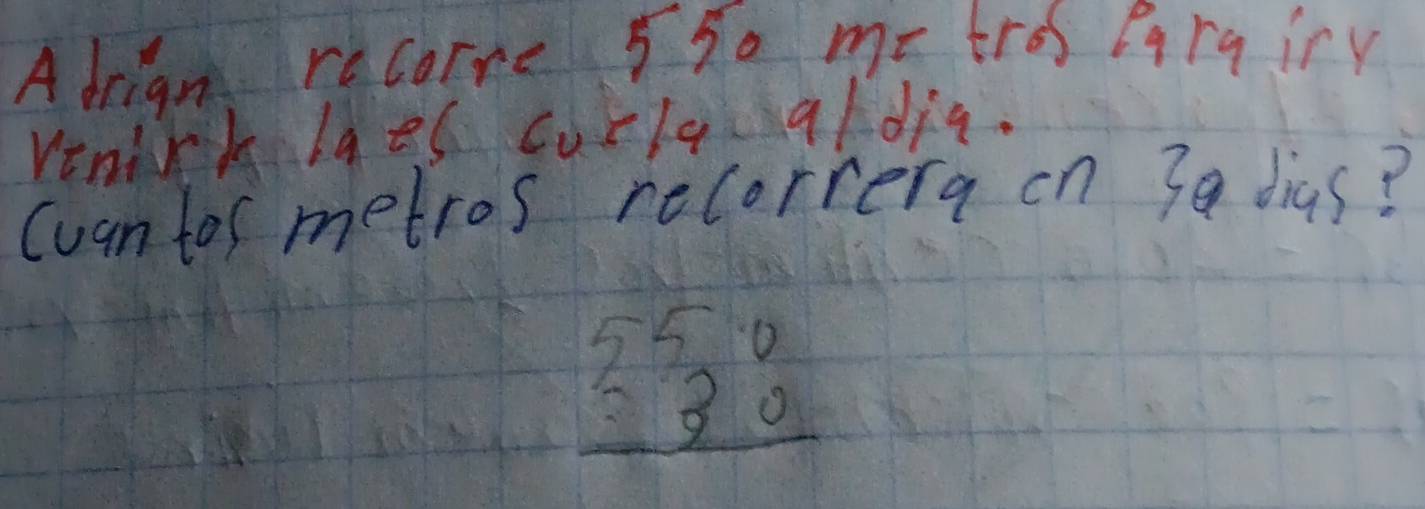 Adrián recorre 550 metros Para ir y
venir de la escuela al dia.
Cuantos metros recorrera en 30 dias?
550
- 30